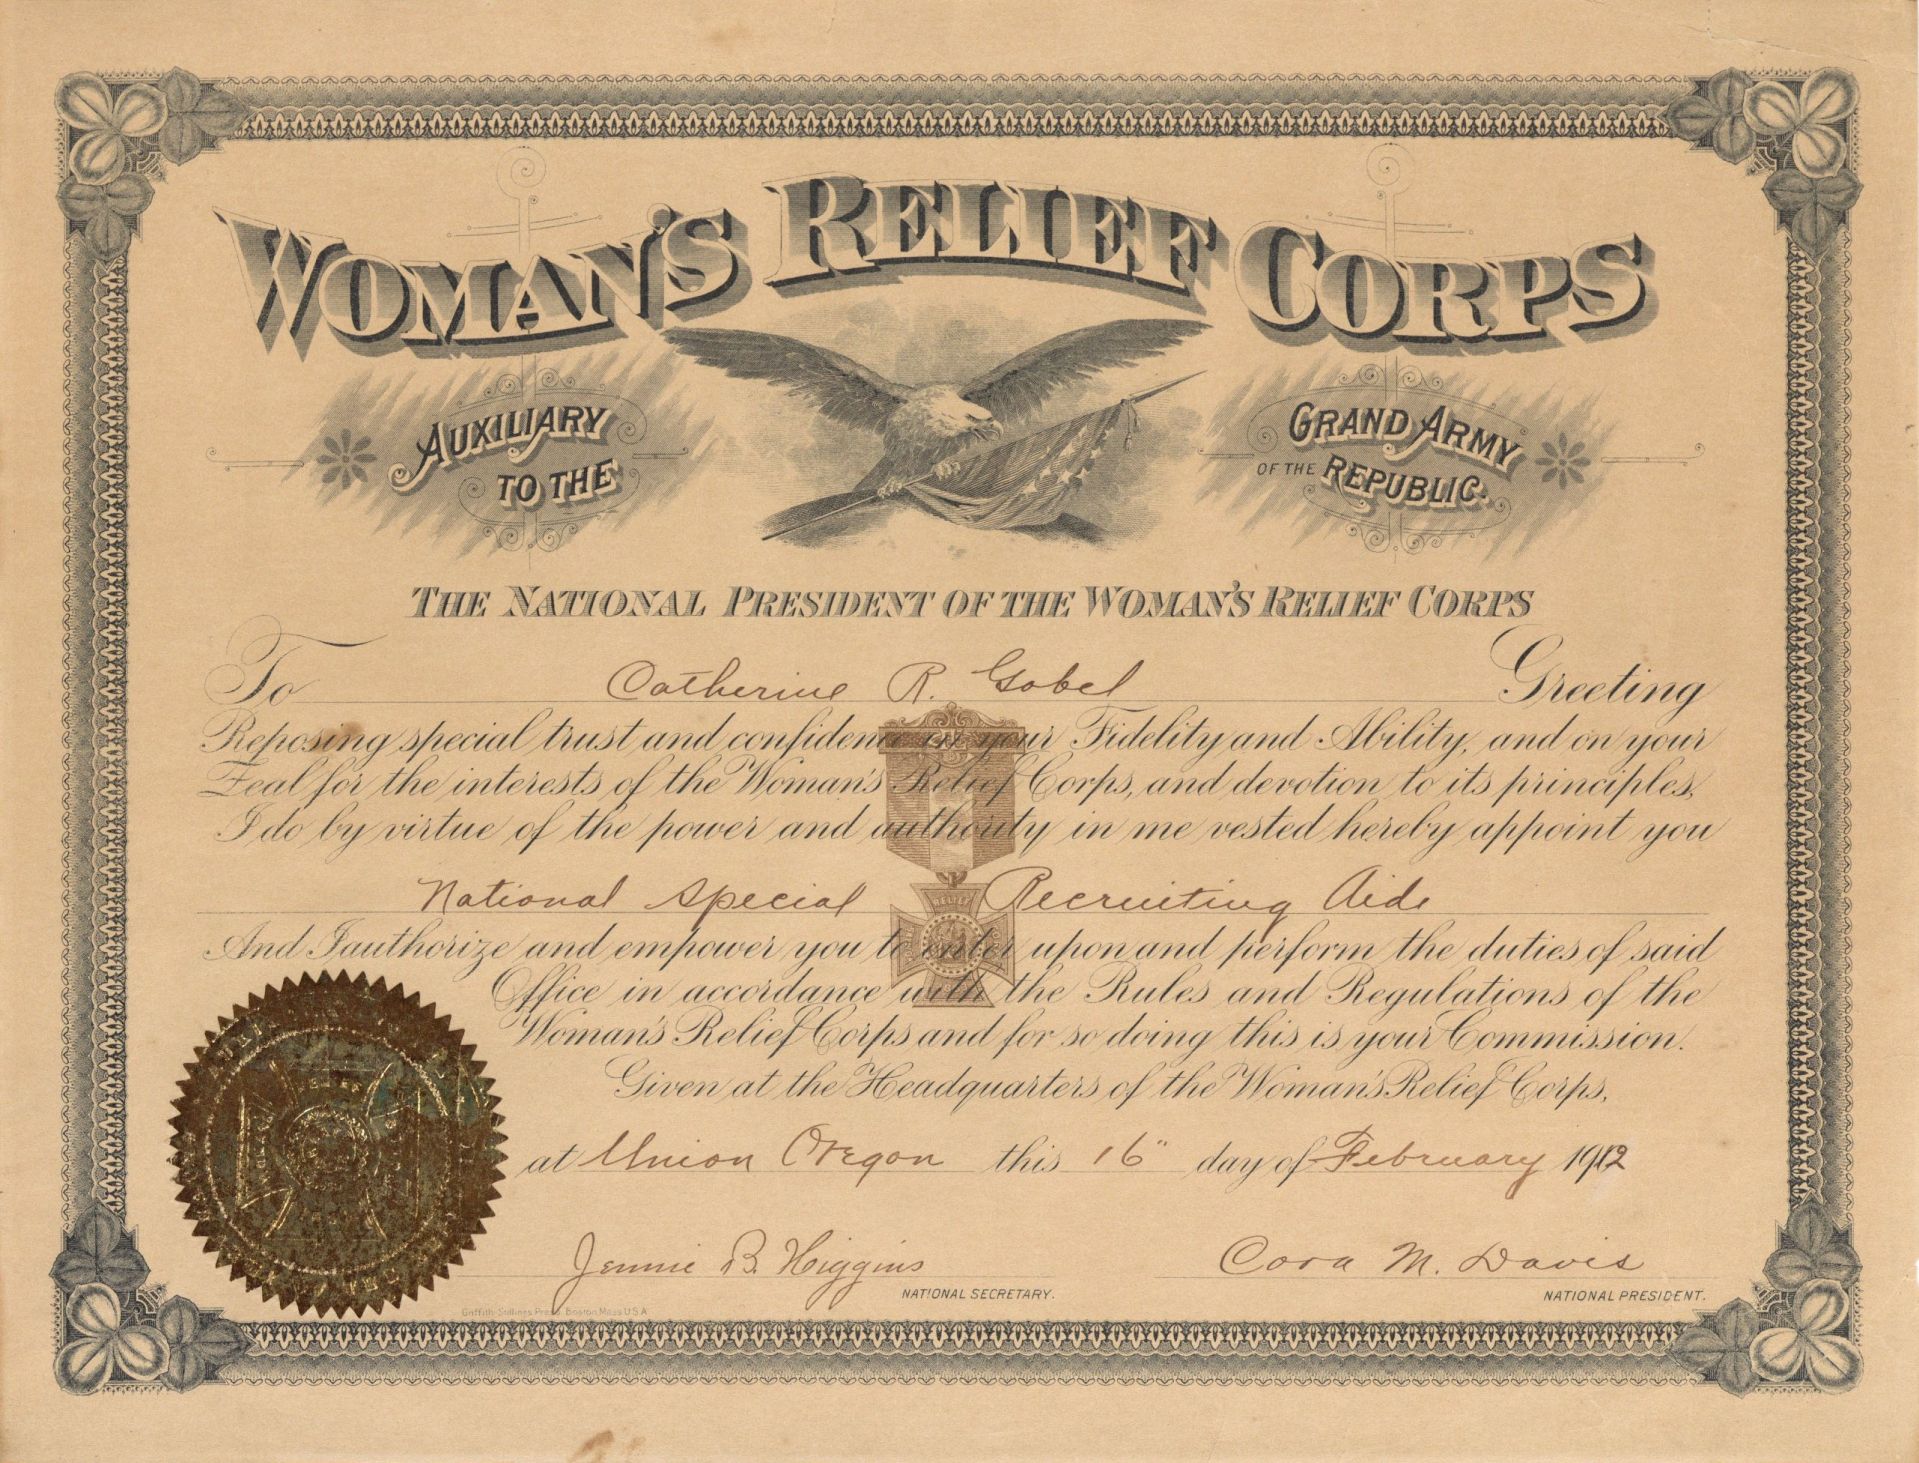 WOMAN'S RELIEF CORPS
AUXILIARY
TO THE
GRAND ARMY
OF THE REPUBLIC.
THE NATIONAL PRESIDENT OF THE WOMAN'S RELIEF CORPS
To Catherine R. Gobel Greeting
Reposing special trust and confidence in your Fidelity and Ability, and on your
Zeal for the interests of the Woman's Relief Corps, and devotion to its principles,
I do by virtue of the power and authority in me vested hereby appoint you
National Special Recruiting Aide
And I authorize and empower you to enter upon and perform the duties of said
Office in accordance with the Rules and Regulations of the
Woman's Relief Corps and for so doing this is your Commission.
Given at the Headquarters of the Woman's Relief Corps,
at Union Oregon this 16" day of February 1912
Jennie B. Higgins
NATIONAL SECRETARY.
Cora M. Davis
NATIONAL PRESIDENT.
Griffith-Stillings Press, Boston, Mass U.S.A.
RELIEF